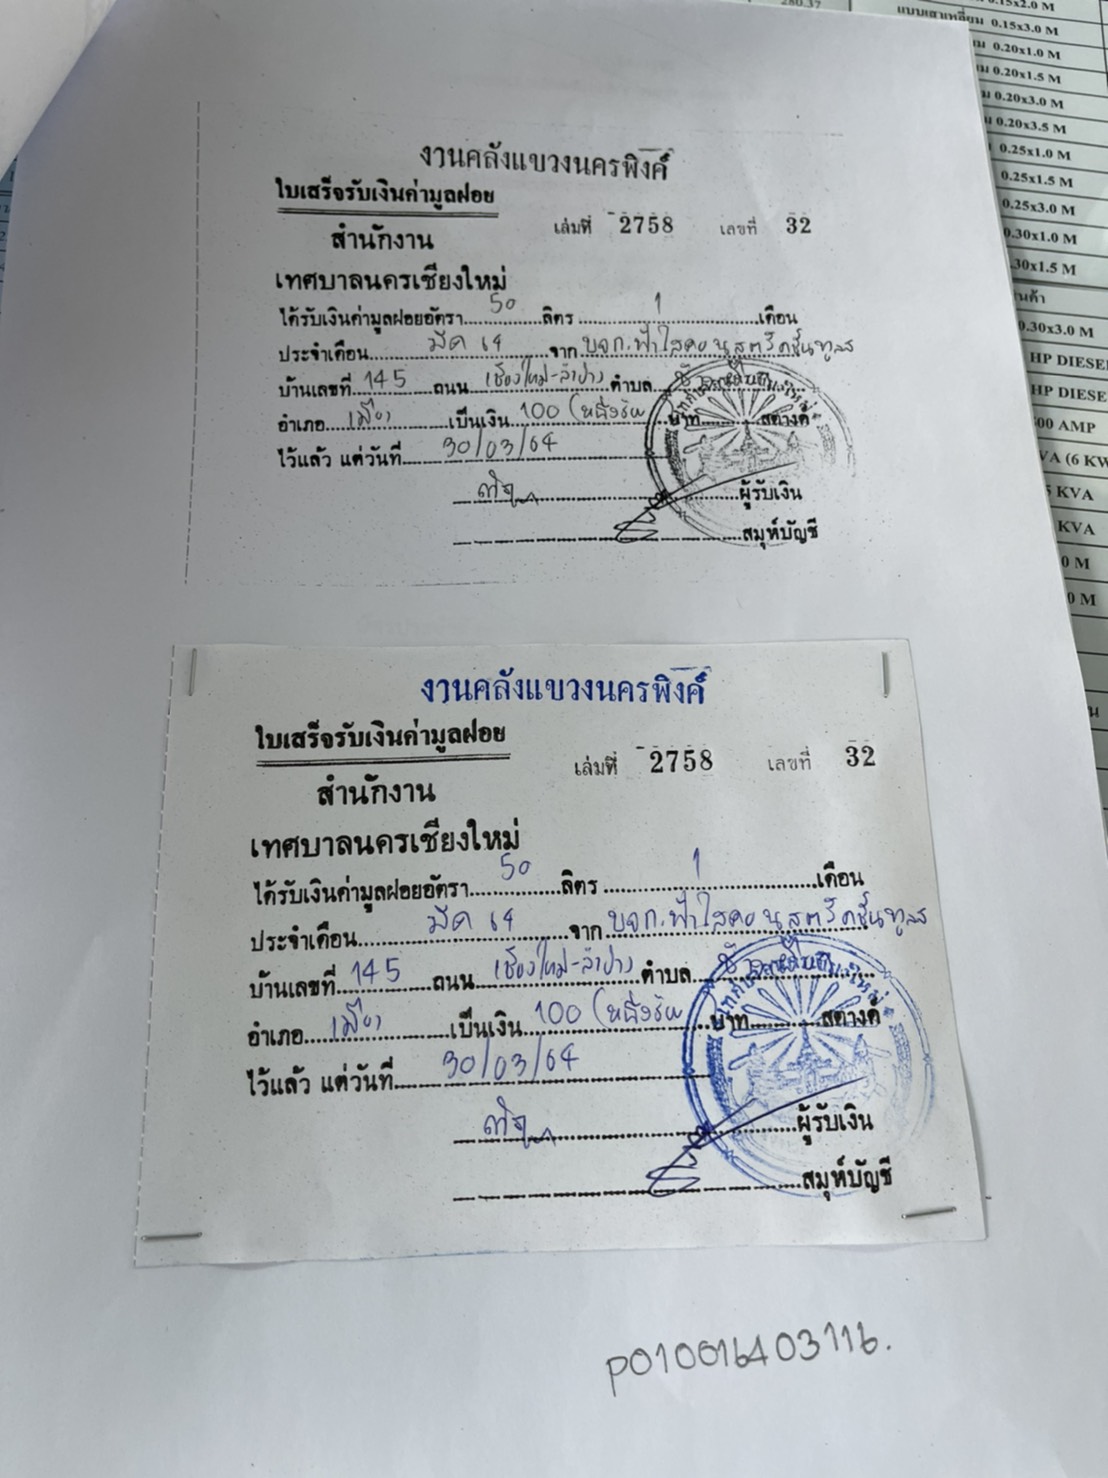 280.37
0.15x2.0 M
แบบเสาเหลี่ยม 0.15x3.0 M
0.20x1.0 M
0.20x1.5 M
0.20x3.0 M
0.20x3.5 M
0.25x1.0 M
0.25x1.5 M
0.25x3.0 M
0.30x1.0 M
.30x1.5 M
0.30x3.0 M
HP DIESE
HP DIESE
00 AMP
VA (6 KW
KVA
KVA
0 M
0 M
งานคลังแขวงนครพิงค์
ใบเสร็จรับเงินค่ามูลฝอย
เล่มที่ 2758 เลขที่ 32
สำนักงาน
เทศบาลนครเชียงใหม่
ได้รับเงินค่ามูลฝอยอัตรา 50 ลิตร 1 เดือน
ประจำเดือน มีค 64 จาก บจก.ฟ้าใสคอนสตรัคชั่นทูลส
บ้านเลขที่ 145 ถนน เชียงใหม่-ลำปาง ตำบล
อำเภอ เมือง เป็นเงิน 100 (หนึ่งร้อย บาท สตางค์
ไว้แล้ว แต่วันที่ 30/03/64
ผู้รับเงิน
สมุห์บัญชี
งานคลังแขวงนครพิงค์
ใบเสร็จรับเงินค่ามูลฝอย
เล่มที่ 2758 เลขที่ 32
สำนักงาน
เทศบาลนครเชียงใหม่
ได้รับเงินค่ามูลฝอยอัตรา 50 ลิตร 1 เดือน
ประจำเดือน มีค 64 จาก บจก.ฟ้าใสคอนสตรัคชั่นทูลส
บ้านเลขที่ 145 ถนน เชียงใหม่-ลำปาง ตำบล
อำเภอ เมือง เป็นเงิน 100 (หนึ่งร้อย บาท สตางค์
ไว้แล้ว แต่วันที่ 30/03/64
ผู้รับเงิน
สมุห์บัญชี
P010016403116.